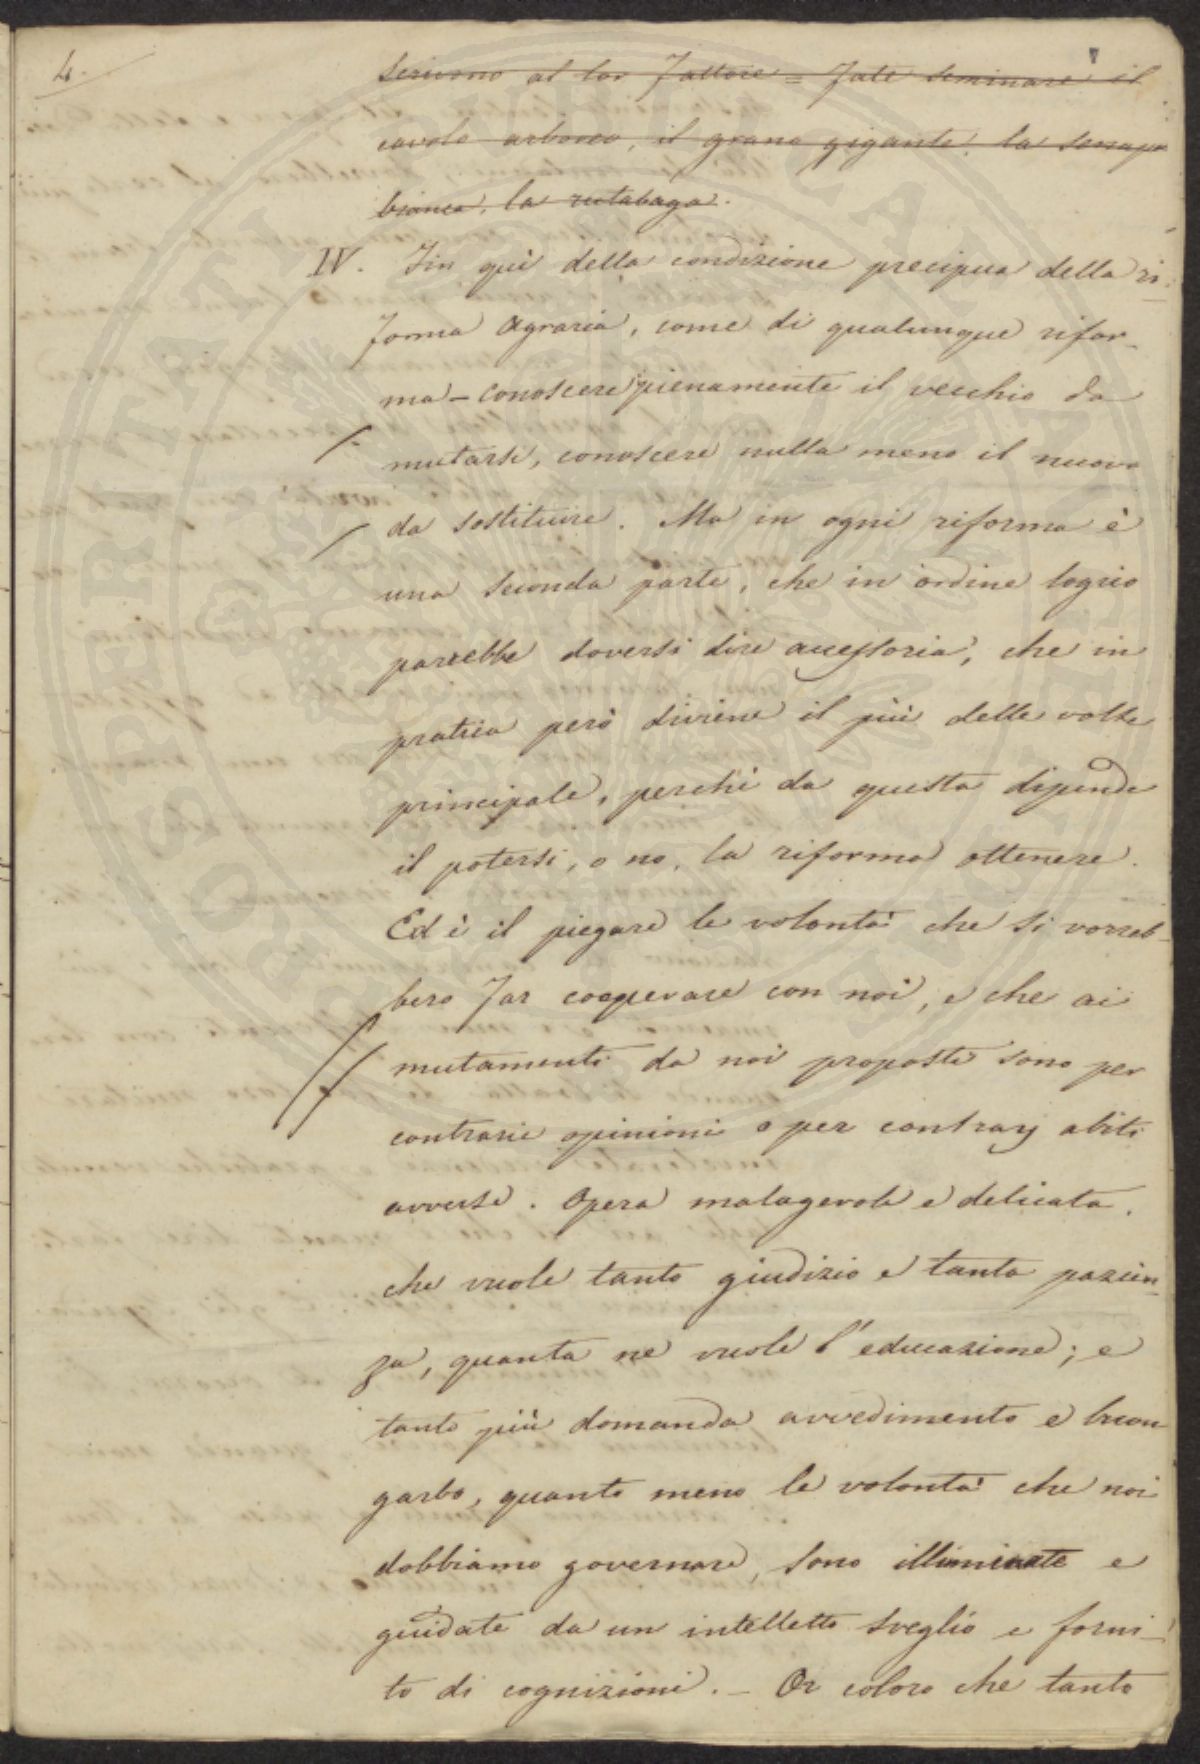 4.
scrivono al lor Fattore = Fate seminare il
cavolo arboreo, il grano gigante, la senapa
bianca, la rutabaga.
IV. Fin quì della condizione precipua della ri-
forma Agraria, come di qualunque rifor-
ma – conoscere pienamente il vecchio da
mutarsi, conoscere nulla meno il nuovo
da sostituire. Ma in ogni riforma è
una seconda parte, che in ordine logico
parrebbe doversi dire accessoria, che in
pratica però diviene il più delle volte
principale, perchè da questa dipende
il potersi, o no, la riforma ottenere.
Ed è il piegare le volontà che si vorreb-
bero far cooperare con noi, e che ai
mutamenti da noi proposti sono per
contrarie opinioni o per contrarj abiti
avverse. Opera malagevole e delicata,
che vuole tanto giudizio e tanta pazien-
za, quanta ne vuole l'educazione; e
tanto più domanda avvedimento e buon
garbo, quanto meno le volontà che noi
dobbiamo governare, sono illuminate e
guidate da un intelletto sveglio e forni-
to di cognizioni. – Or coloro che tanto
PROSPERITATI PUBLICAE